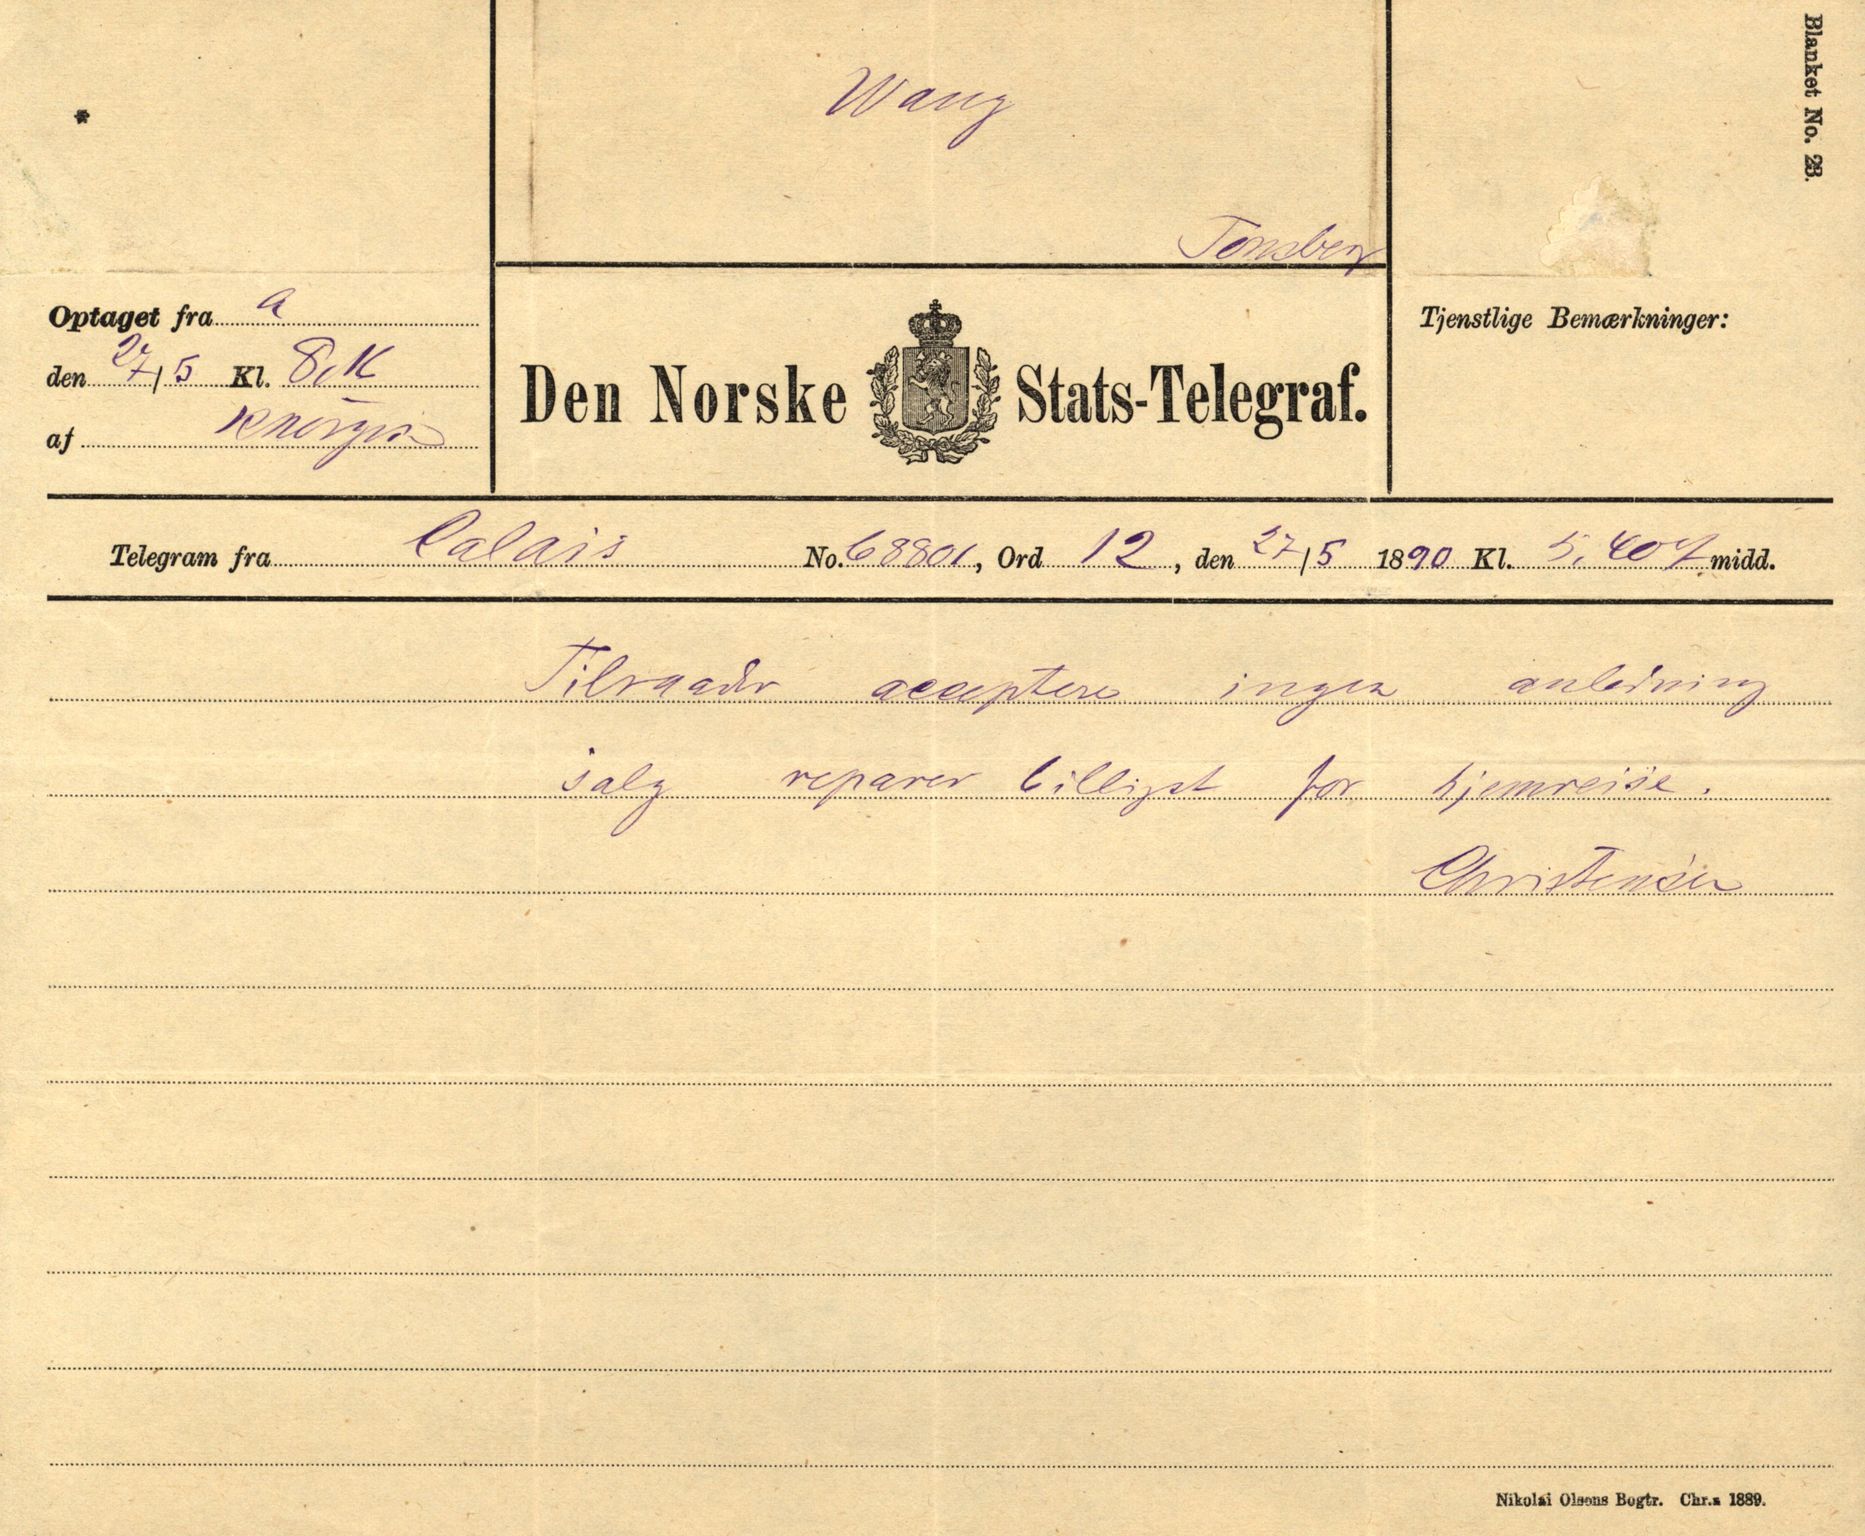 Blanket No. 23.
Wang
Tønsberg
Optaget fra a
den 27/5 Kl. 8,
af
Den Norske Stats-Telegraf.
Tjenstlige Bemærkninger:
Telegram fra Calais No. 68801, Ord 12, den 27/5 1890 Kl. 5.40 midd.
Tilraader acceptere ingen anledning
salg reparer billigst for hjemreise.
Christensen
Nikolai Olsens Bogtr. Chr.a 1889.